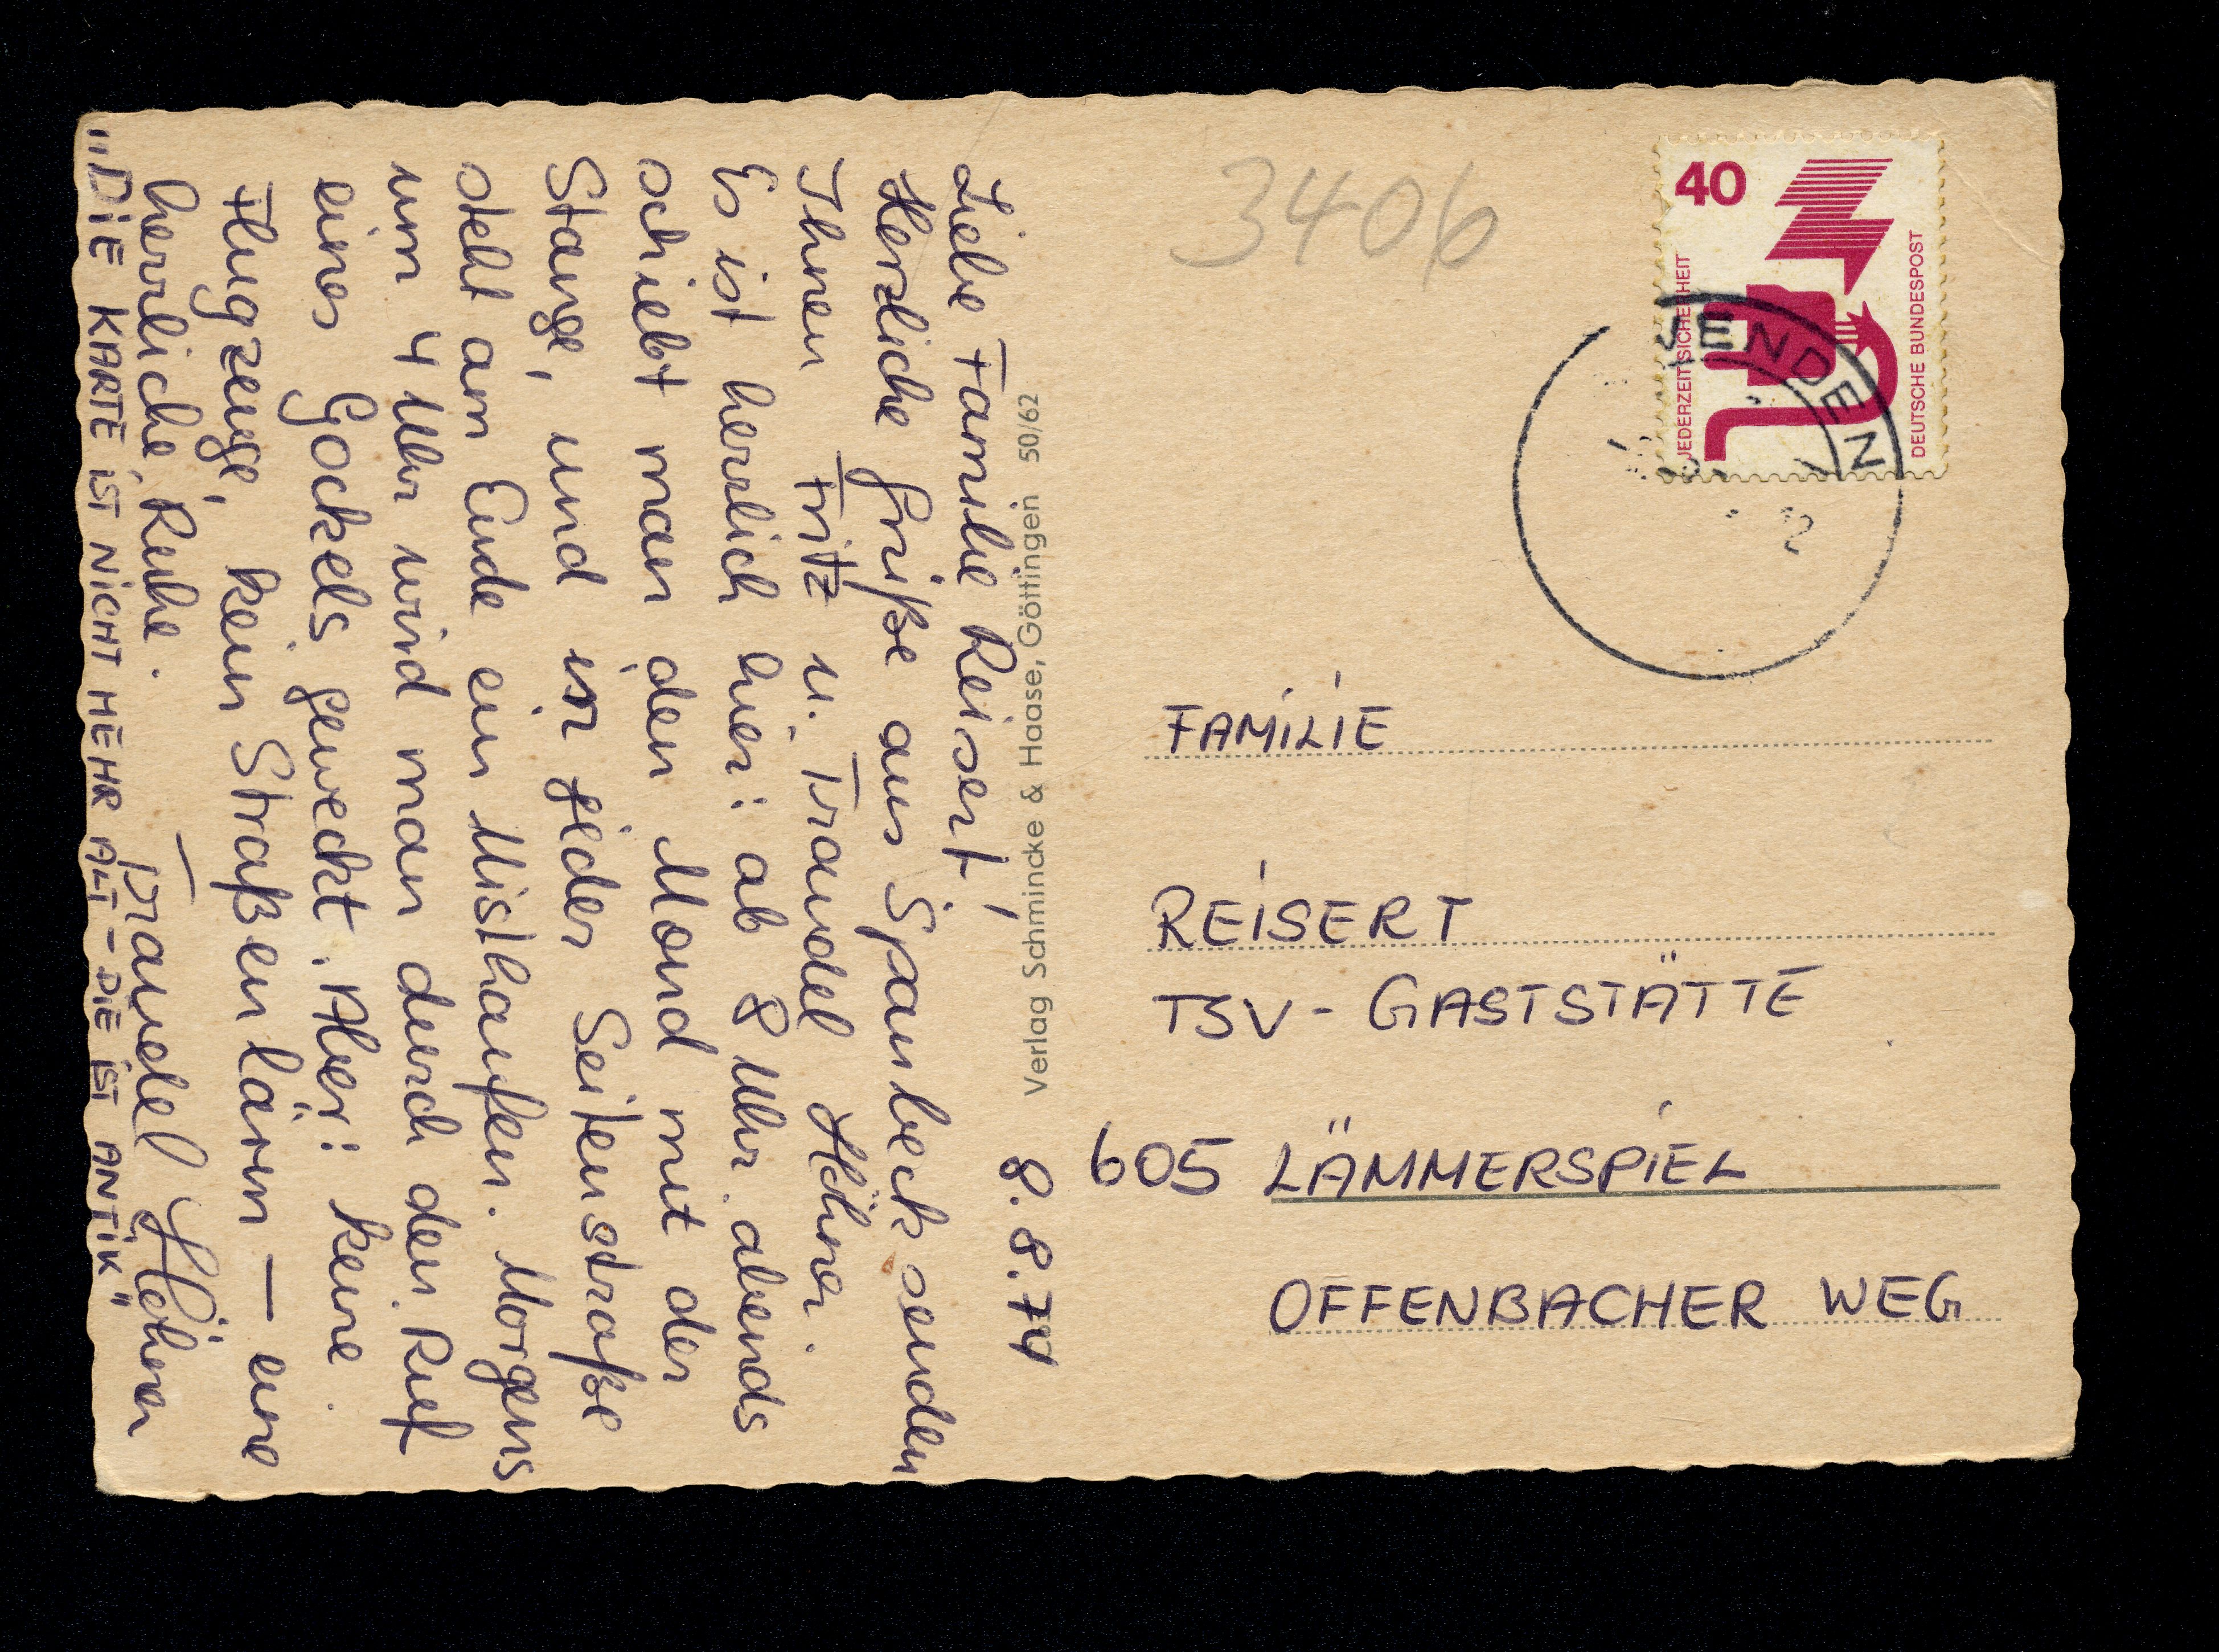 8.8.74
Liebe Familie Reisert,
Herzliche Grüße aus Spanbeck senden
Ihnen Fritz u. Traudel Höhner.
Es ist herrlich hier: ab 8 Uhr abends
schiebt man den Mond mit der
Stange, und in jeder Seitenstraße
steht am Ende ein Misthaufen. Morgens
um 4 Uhr wird man durch den Ruf
eines Gockels geweckt. Aber: keine
Flugzeuge, kein Straßenlärm – eine
herrliche Ruhe.
Traudel Höhner
"DIE KARTE IST NICHT MEHR ALT – DIE IST ANTIK"
Verlag Schmincke & Haase, Göttingen 50/62
3406
40
JEDERZEIT SICHERHEIT
DEUTSCHE BUNDESPOST
ENDEN
FAMILIE
REISERT
TSV - GASTSTÄTTE
605 LÄMMERSPIEL
OFFENBACHER WEG